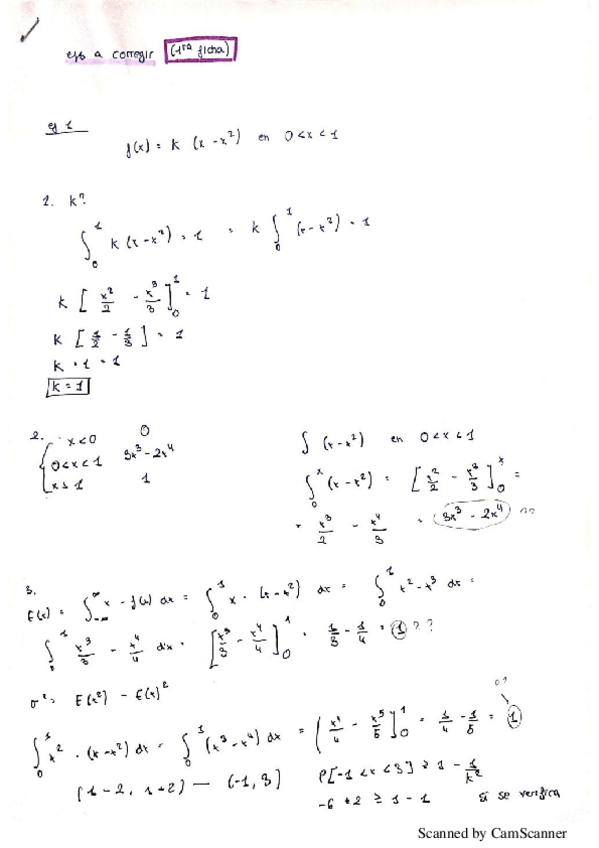 ejs a corregir (1ra ficha)
ej 1
f(x) = k (x - x²) en 0 < x < 1
1. k?
∫₀¹ k (x - x²) = 1 = k ∫₀¹ (x - x²) = 1
k [x²/2 - x³/3]₀¹ = 1
k [1/2 - 1/3] = 1
k · 1 = 1
k = 1
2. x < 0 0
0 < x < 1 3x³ - 2x⁴
x > 1 1
∫ (x - x²) en 0 < x < 1
∫₀ˣ (x - x²) = [x²/2 - x³/3]₀ˣ =
= x³/2 - x⁴/3 = 3x³ - 2x⁴ ??
3.
E(x) = ∫₋∞^∞ x · f(x) dx = ∫₀¹ x · (x - x²) dx = ∫₀¹ x² - x³ dx =
∫₀¹ x³/3 - x⁴/4 dx = [x³/3 - x⁴/4]₀¹ = 1/3 - 1/4 = 1 ??
σ² = E(x²) - E(x)²
∫₀¹ x² · (x - x²) dx = ∫₀¹ (x³ - x⁴) dx = [x⁴/4 - x⁵/5]₀¹ = 1/4 - 1/5 = 1
(1 - 2, 1 + 2) — (-1, 3) P[-1 < x < 3] ≥ 1 - 1/k²
≥ 1 - 1 Si se verifica
Scanned by CamScanner